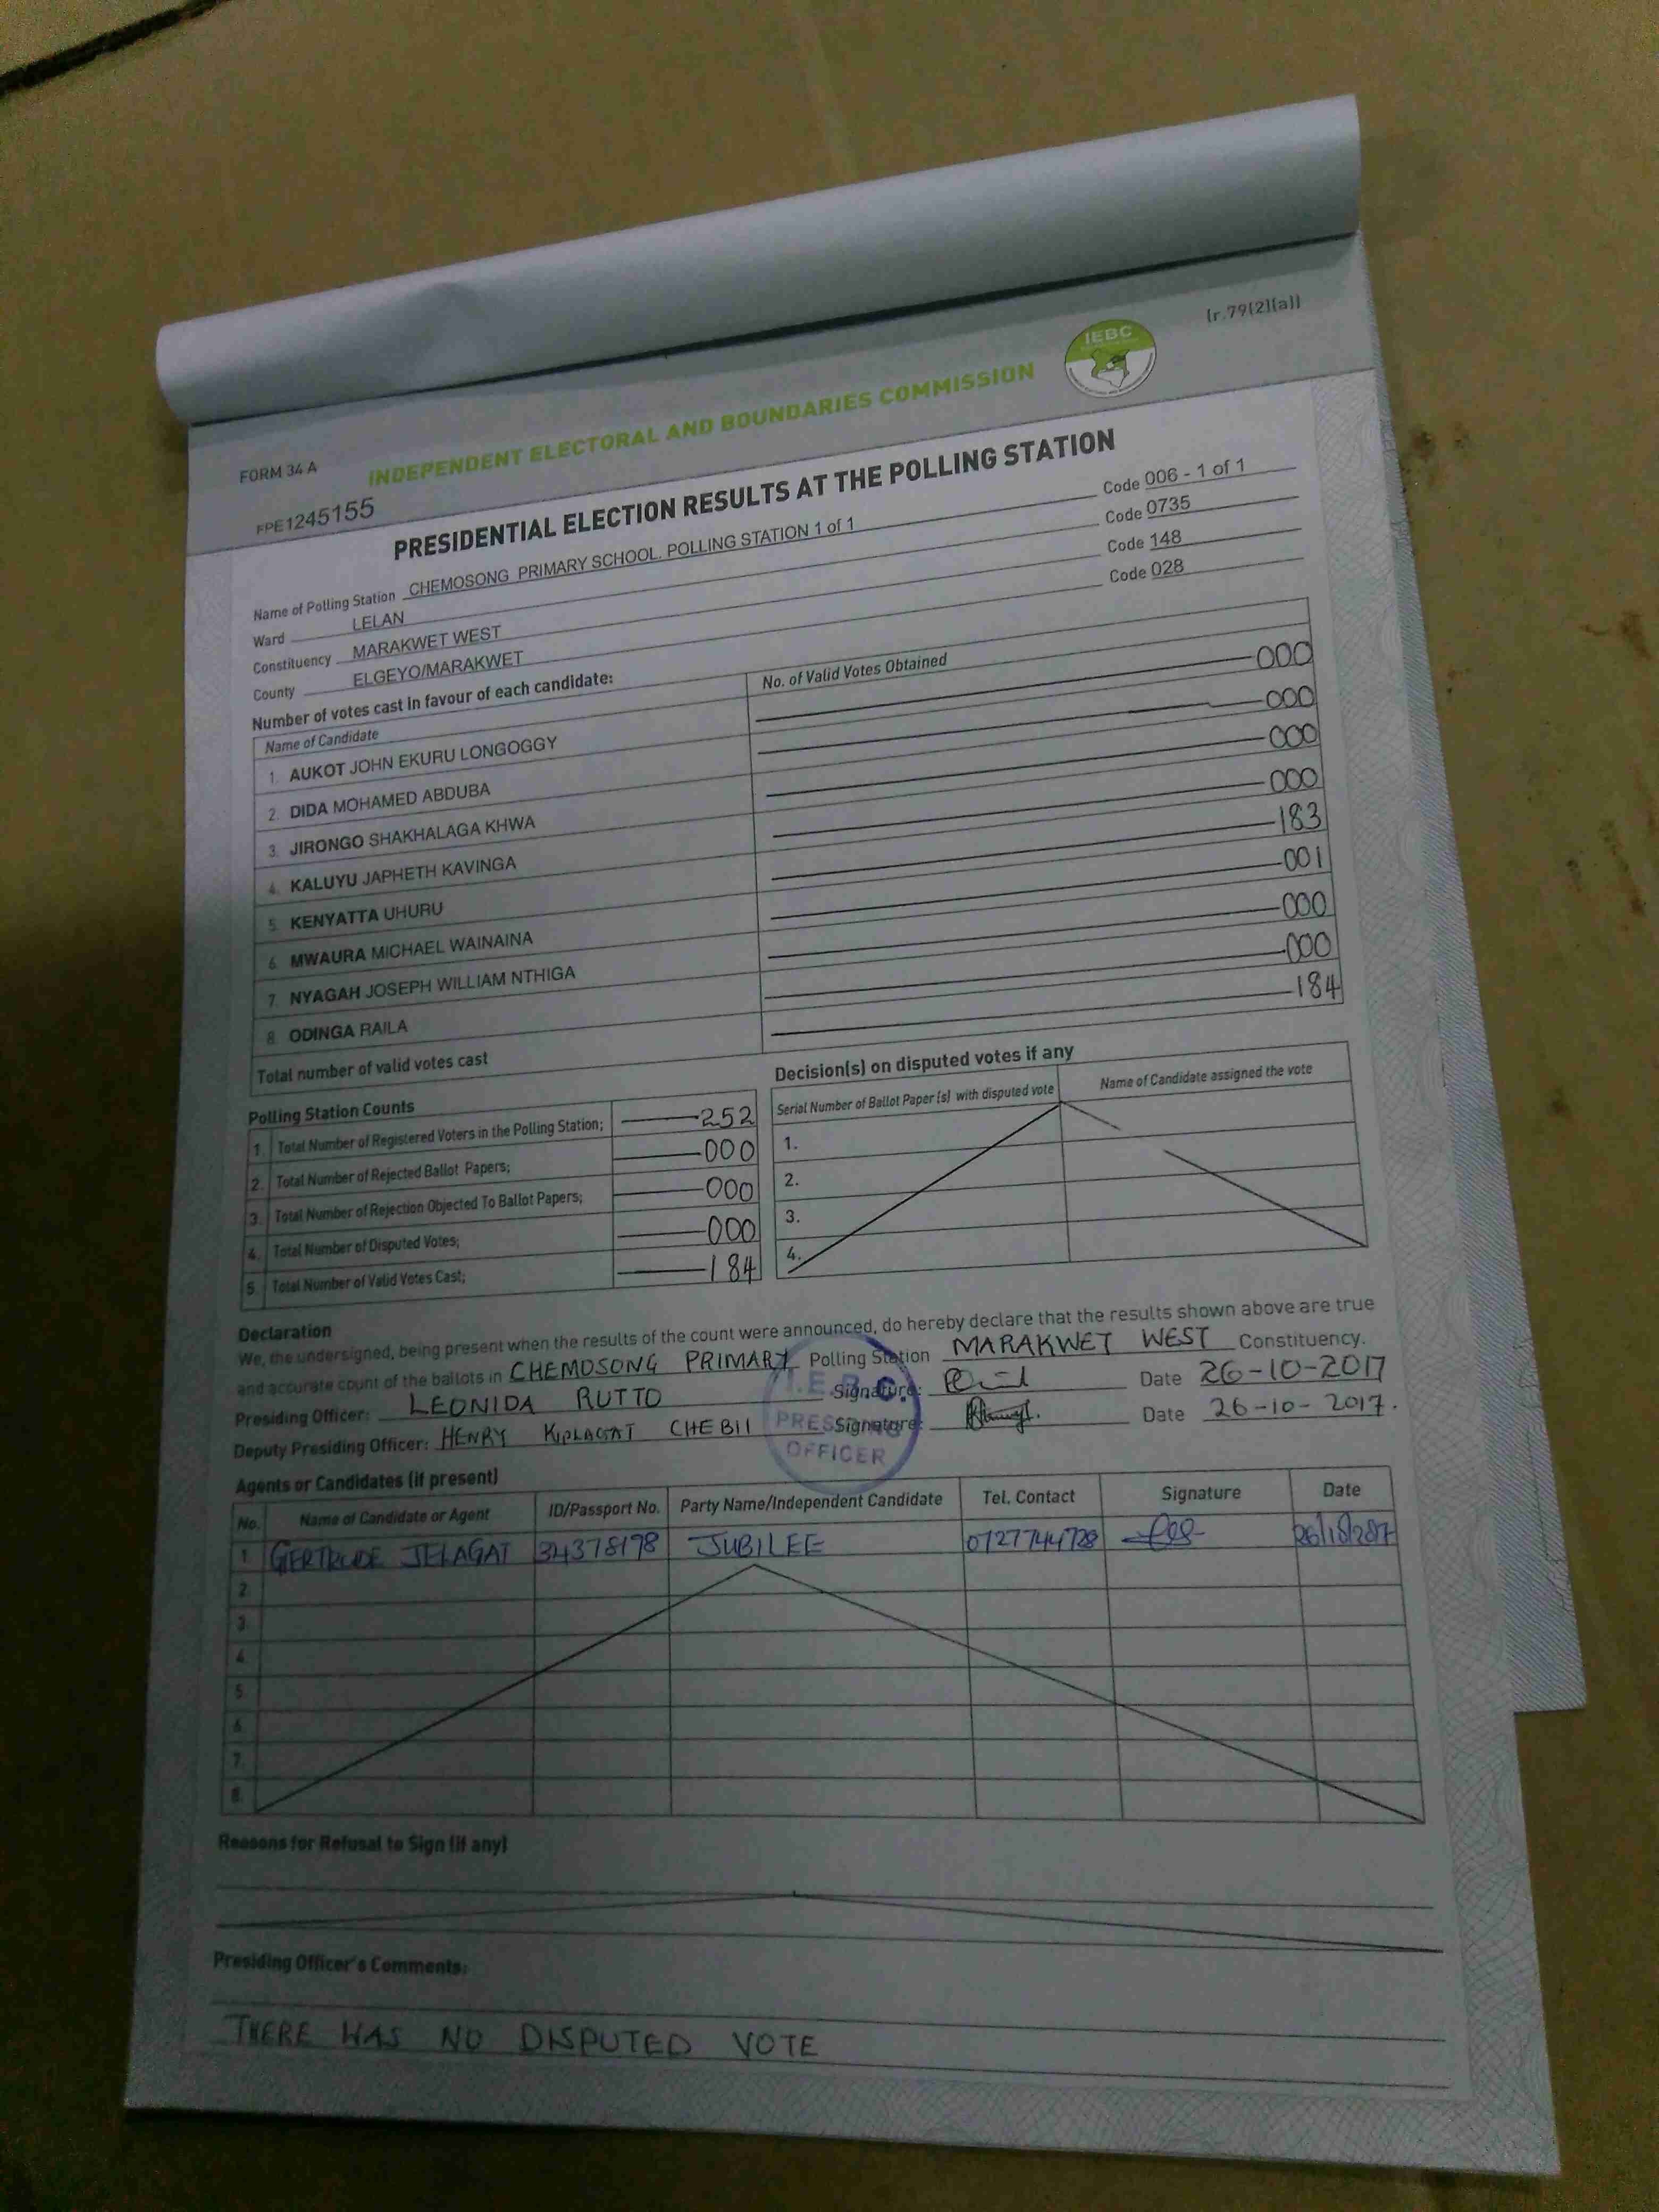 (r.79(2)(a))
IEBC
FORM 34 A
INDEPENDENT ELECTORAL AND BOUNDARIES COMMISSION
FPE1245155
PRESIDENTIAL ELECTION RESULTS AT THE POLLING STATION
Name of Polling Station CHEMOSONG PRIMARY SCHOOL. POLLING STATION 1 of 1 Code 006 - 1 of 1
Ward LELAN Code 0735
Constituency MARAKWET WEST Code 148
County ELGEYO/MARAKWET Code 028
Number of votes cast in favour of each candidate:
Name of Candidate No. of Valid Votes Obtained
1. AUKOT JOHN EKURU LONGOGGY 000
2. DIDA MOHAMED ABDUBA 000
3. JIRONGO SHAKHALAGA KHWA 000
4. KALUYU JAPHETH KAVINGA 000
5. KENYATTA UHURU 183
6. MWAURA MICHAEL WAINAINA 001
7. NYAGAH JOSEPH WILLIAM NTHIGA 000
8. ODINGA RAILA 000
Total number of valid votes cast 184
Polling Station Counts
1. Total Number of Registered Voters in the Polling Station; 252
2. Total Number of Rejected Ballot Papers; 000
3. Total Number of Rejection Objected To Ballot Papers; 000
4. Total Number of Disputed Votes; 000
5. Total Number of Valid Votes Cast; 184
Decision(s) on disputed votes if any
Serial Number of Ballot Paper (s) with disputed vote Name of Candidate assigned the vote
1.
2.
3.
4.
Declaration
We, the undersigned, being present when the results of the count were announced, do hereby declare that the results shown above are true
and accurate count of the ballots in CHEMOSONG PRIMARY Polling Station MARAKWET WEST Constituency.
Presiding Officer: LEONIDA RUTTO Signature: Date 26-10-2017
Deputy Presiding Officer: HENRY KIPLAGAT CHEBII Signature: Date 26-10-2017.
I.E.B.C.
PRESIDING
OFFICER
Agents or Candidates (if present)
No. Name of Candidate or Agent ID/Passport No. Party Name/Independent Candidate Tel. Contact Signature Date
1. GERTRUDE JELAGAT 34378178 JUBILEE 0727744728
2.
3.
4.
5.
6.
7.
8.
Reasons for Refusal to Sign (if any)
Presiding Officer's Comments:
THERE WAS NO DISPUTED VOTE